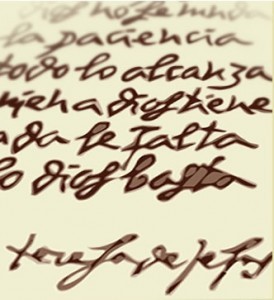 dios no se muda
la paciencia
todo lo alcanza
quien a dios tiene
nada le falta
solo dios basta
teresa de jesus